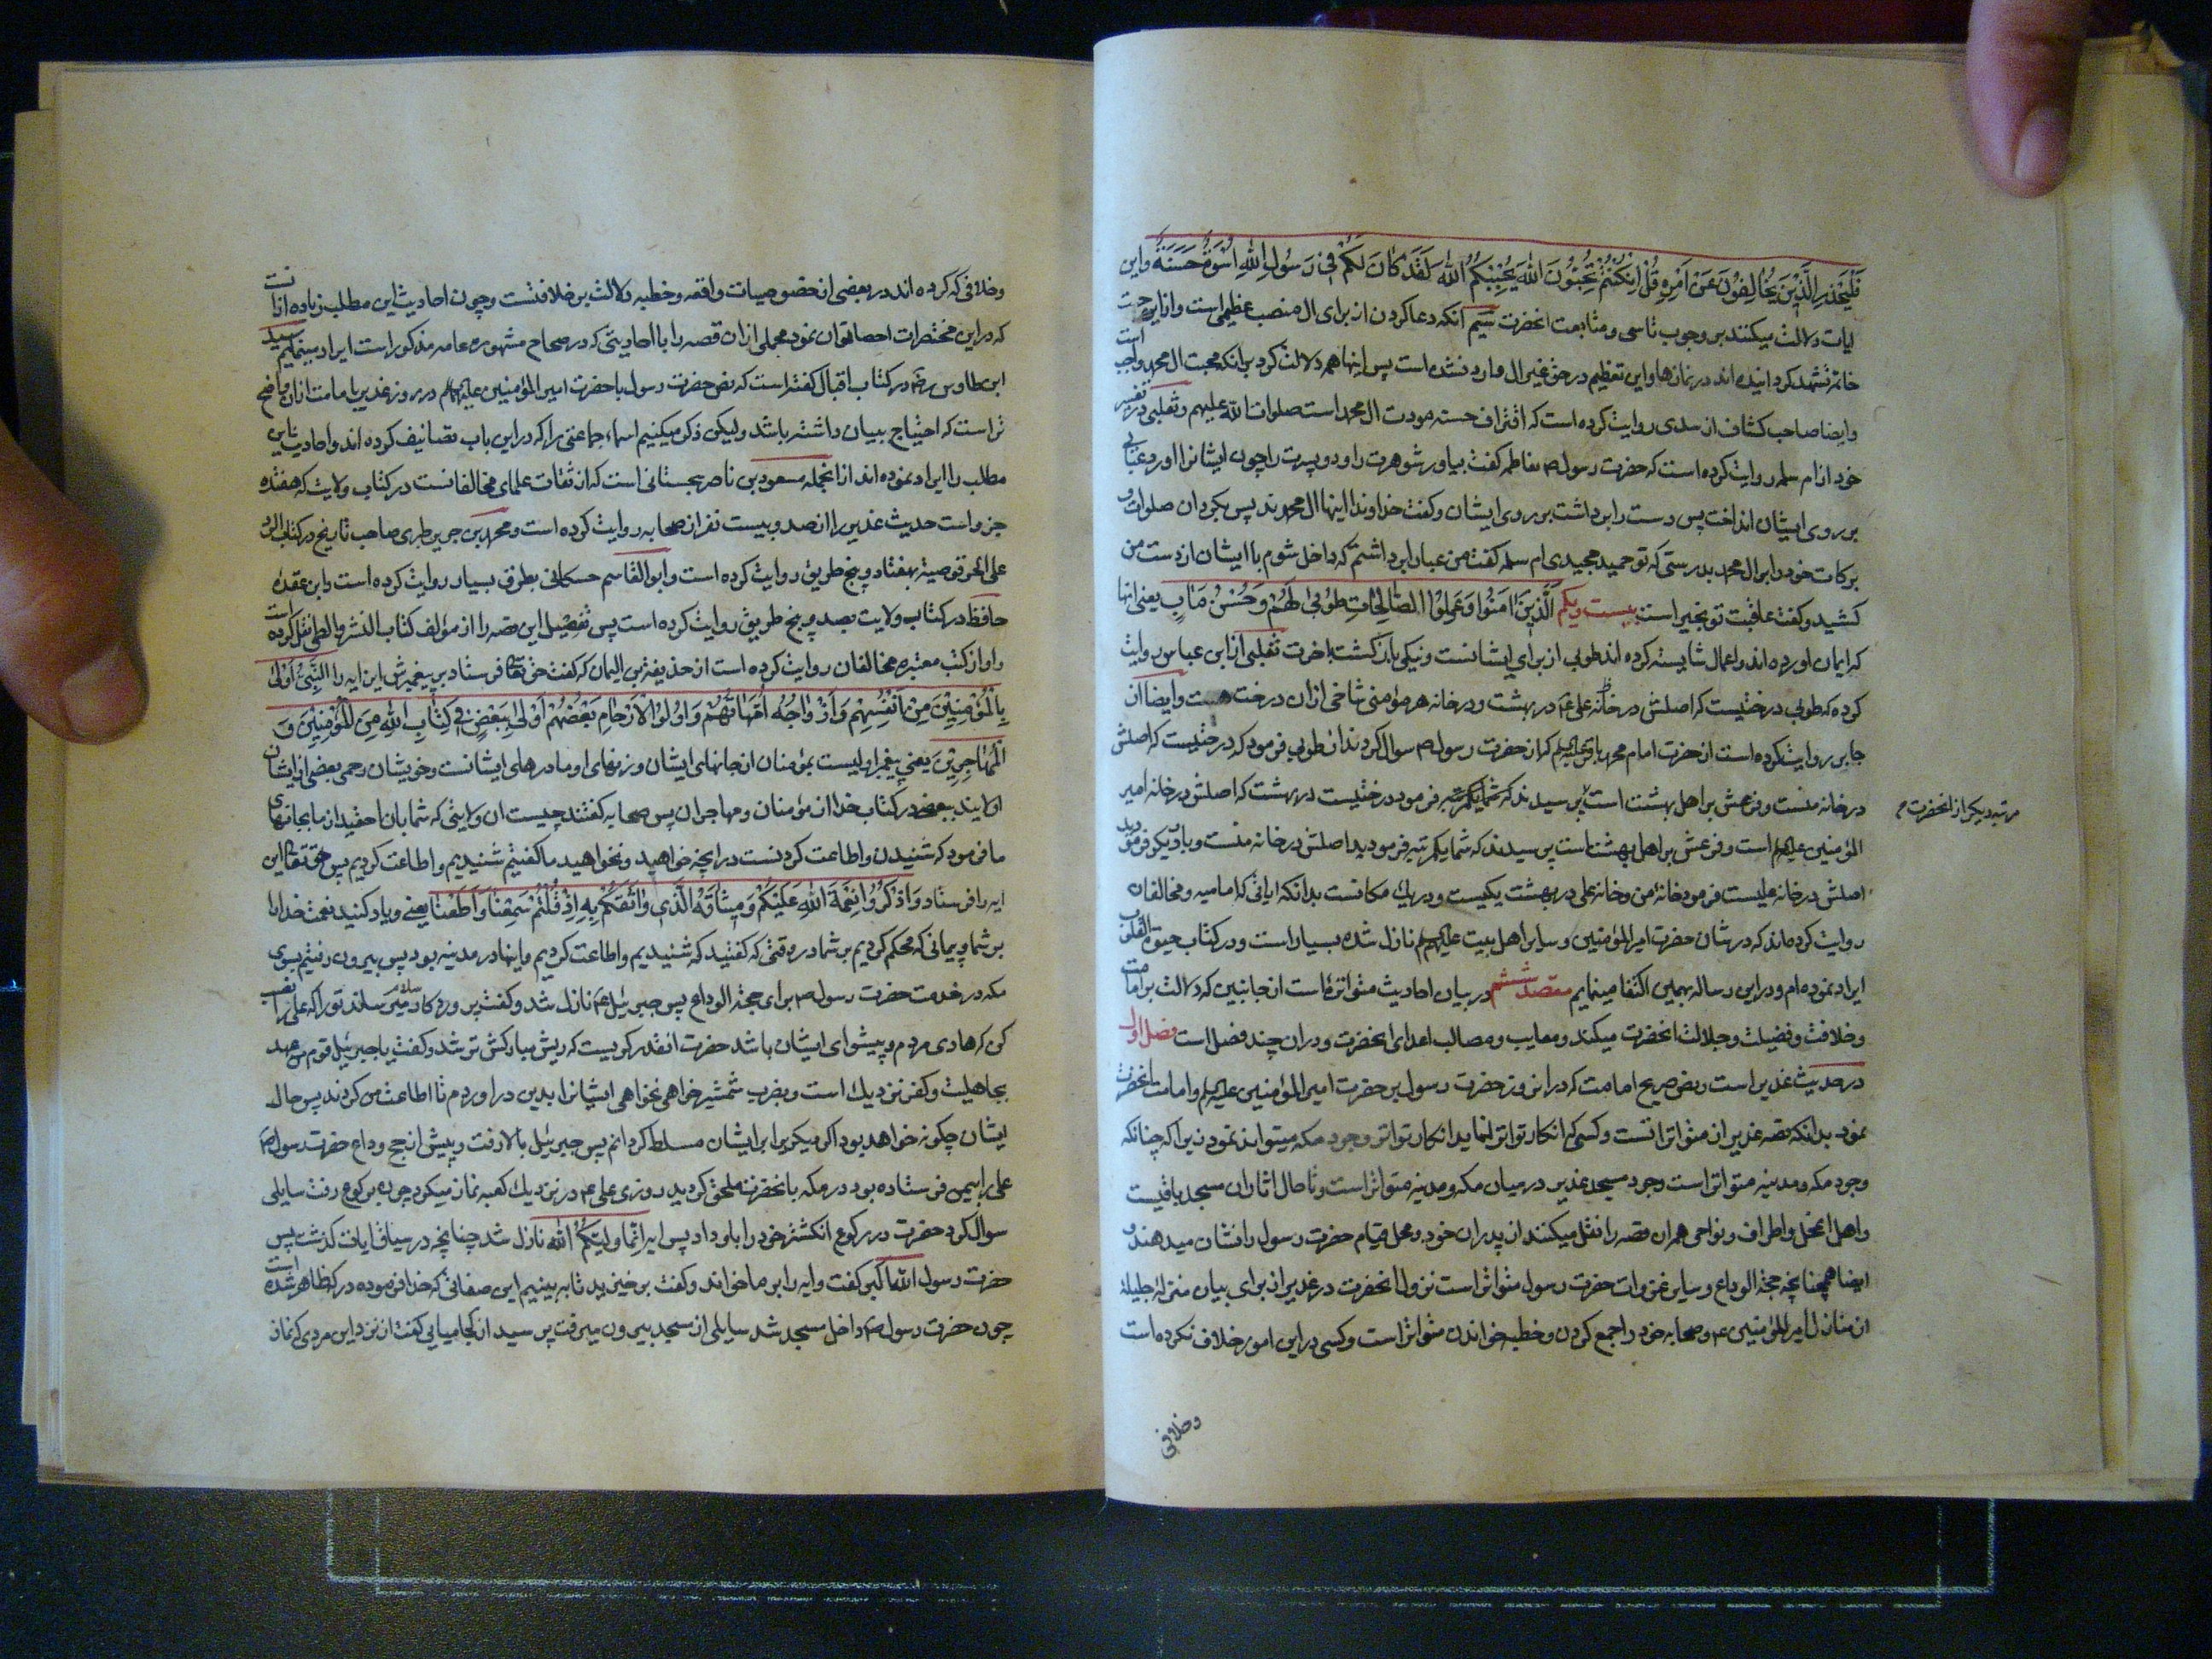 فَلْيَحْذَرِ الَّذِينَ يُخَالِفُونَ عَنْ أَمْرِهِ قُلْ إِنْ كُنْتُمْ تُحِبُّونَ اللهَ يُحْبِبْكُمُ اللهُ لَقَدْ كَانَ لَكُمْ فِي رَسُولِ اللهِ أُسْوَةٌ حَسَنَةٌ واین
ایات دلالت میکنند بر وجوب تاسی و متابعت انحضرت سیم انکه دعا کردن از برای ال منصب عظیمی است و ازاین جهت
خاتمه تشهد کردانیده اند در نمازها واین تعظیم در حق غیر ال وارد نشده است پس اینها همه دلالت کرد برانکه محبت ال محمد واجب است
وایضا صاحب کشاف از سدی روایت کرده است که اقتراف حسنه مودت ال محمد است صلوات الله علیهم و ثعلبی در تفسیر
خود از ام سلمه روایت کرده است که حضرت رسول ص بفاطمه کفت بیاور شوهرت را و دو پسرت را چون ایشانرا اورد عبائی
بر روی ایشان انداخت پس دست را برداشت بر روی ایشان وکفت خداوندا اینها ال محمدند پس بکردان صلوات و
برکات خود را بر ال محمد بدرستی که تو حمید مجیدی ام سلمه کفت من عبا را برداشتم که داخل شوم با ایشان از دست من
کشید وکفت عاقبت تو بخیر است بیست ویکم الَّذِينَ آمَنُوا وَعَمِلُوا الصَّالِحَاتِ طُوبَى لَهُمْ وَحُسْنُ مَآبٍ یعنی انها
که ایمان اورده اند واعمال شایسته کرده اند طوبی از برای ایشانست ونیکی بازکشت اخرت ثعلبی از ابن عباس روایت
کرده که طوبی درختیست که اصلش در خانه علی ع در بهشت ودر خانه هر مؤمنی شاخی ازان درخت هست وایضا از
جابر روایتکرده است از حضرت امام محمد باقر علیه السلم که از حضرت رسول ص سوال کردند از طوبی فرمود که درختیست که اصلش
در خانه منست وفرعش بر اهل بهشت است پرسیدند که شما یکمرتبه فرمودید درختیست در بهشت که اصلش در خانه امیر
مرتبه دیکر از انحضرت
المؤمنین علیه السلم است وفرعش بر اهل بهشت است پرسیدند که شما یکمرتبه فرمودید اصلش در خانه منست وبار دیکر فرمودید
اصلش در خانه علیست فرمود خانه من وخانه علی در بهشت یکیست ودر یک مکانست بدانکه ایاتی که امامیه ومخالفان
روایت کرده اند که در شان حضرت امیر المؤمنین وسایر اهل بیت علیهم السلم نازل شده بسیار است ودر کتاب حیوة القلوب
ایراد نموده ام ودر این رساله بهمین اکتفا مینمایم مقصد ششم در بیان احادیث متواتره است از جانبین که دلالت بر امامت
وخلافت وفضیلت وجلالت انحضرت میکند ومعایب ومصالب اعدای انحضرت ودران چند فصل است فصل اول
در حدیث غدیر است ونص صریح امامت که در انروز حضرت رسول بر حضرت امیر المؤمنین علیه السلم وامامت انحضرت
نمود بدانکه قصه غدیر از متواتراتست وکسی که انکار تواتر انها نماید انکار تواتر وجود مکه میتواند نمود زیرا که چنانکه
وجود مکه ومدینه متواتر است وجود مسجد غدیر در میان مکه ومدینه متواتر است وتا حال اثار ان مسجد باقیست
واهل انمحل واطراف ونواحی همه ان قصه را نقل میکنند از پدران خود ومحل قیام حضرت رسول را نشان میدهند و
ایضا همچنانچه حجة الوداع وسایر غزوات حضرت رسول متواتر است نزول انحضرت در غدیر از برای بیان منزله جلیله
از منازل امیر المؤمنین ع وصحابه خود را جمع کردن وخطبه خواندن متواتر است وکسی در این امور خلاف نکرده است
وخلافی
وخلافی که کرده اند در بعضی از خصوصیات واقعه وخطبه دلالت بر خلافتست وچون احادیث این مطلب زیاده ازانست
که دراین مختصرات احصا توان نمود مجملی ازان قصه را با احادیثی که در صحاح مشهوره عامه مذکور است ایراد مینمایم سید
ابن طاوس رض در کتاب اقبال کفته است که نص حضرت رسول با حضرت امیر المؤمنین علیه السلم در روز غدیر با مامت ازان واضح
تر است که احتیاج ببیان داشته باشد ولیکن ذکر میکنیم اسماء جماعتی را که دراین باب تصانیف کرده اند واحادیث این
مطلب را ایراد نموده اند ازانجمله مسعود بن ناصر سجستانی است که از ثقات علمای مخالفانست در کتاب ولایت که هفده
جزو است حدیث غدیر را از صد وبیست نفر از صحابه روایت کرده است ومحمد بن جریر طبری صاحب تاریخ در کتاب الرد
علی الحرقوصیة بهفتاد وپنج طریق روایت کرده است وابو القاسم حسکانی بطرق بسیار روایت کرده است وابن عقده
حافظ در کتاب ولایت بصد وپنج طریق روایت کرده است پس تفصیل این قصه را از مؤلف کتاب النشر والطی نقل کرده است
واو از کتب معتبره مخالفان روایت کرده است از حذیفة بن الیمان که کفت حق تعالی فرستاد بر پیغمبرش این ایه را النَّبِيُّ أَوْلَى
بِالْمُؤْمِنِينَ مِنْ أَنْفُسِهِمْ وَأَزْوَاجُهُ أُمَّهَاتُهُمْ وَأُولُوا الْأَرْحَامِ بَعْضُهُمْ أَوْلَى بِبَعْضٍ فِي كِتَابِ اللهِ مِنَ الْمُؤْمِنِينَ وَ
الْمُهَاجِرِينَ یعنی پیغمبر اولیست بمؤمنان از جانهای ایشان وزنهای او مادرهای ایشانست وخویشان رحمی بعضی از ایشان
اولایند ببعضی در کتاب خدا از مؤمنان ومهاجران پس صحابه کفتند چیست ان ولایتی که شما بان احقید از ما بجانهای
ما فرمود که شنیدن واطاعت کردنست در انچه خواهید ونخواهید ما کفتیم شنیدیم واطاعت کردیم پس حق تعالی این
ایه را فرستاد وَاذْكُرُوا نِعْمَةَ اللهِ عَلَيْكُمْ وَمِيثَاقَهُ الَّذِي وَاثَقَكُمْ بِهِ إِذْ قُلْتُمْ سَمِعْنَا وَأَطَعْنَا یعنی ویاد کنید نعمت خدا را
بر شما وپیمانی که محکم کردیم بر شما در وقتی که کفتید که شنیدیم واطاعت کردیم واینها در مدینه بود پس بیرون رفتیم بسوی
مکه در خدمت حضرت رسول ص برای حجة الوداع پس جبرئیل ع نازل شد وکفت پروردکارت سلام میرساند تو را که علی را نصب
کن که هادی مردم وپیشوای ایشان باشد حضرت انقدر کریست که ریش مبارکش تر شد وکفت یا جبرئیل قوم من عهد
بجاهلیت وکفر نزدیک است وبضرب شمشیر خواهی نخواهی ایشانرا بدین در اوردم تا اطاعت من کردند پس حال
ایشان چکونه خواهد بود اکر دیکری را بر ایشان مسلط کردانم پس جبرئیل بالا رفت وپیش از حج وداع حضرت رسول ص
علی را بیمن فرستاده بود در مکه بانحضرت ملحق کردید روزی علی ع در نزدیک کعبه نماز میکرد چون برکوع رفت سایلی
سوال کرد حضرت در رکوع انکشتر خود را باو داد پس ایه إِنَّمَا وَلِيُّكُمُ اللهُ نازل شد چنانچه در سیاق ایات کذشت پس
حضرت رسول الله اکبر کفت وایه را بر ما خواند وکفت برخیزید تا به بینیم این صفاتی که خدا فرموده در که ظاهر شده است
چون حضرت رسول ص داخل مسجد شد سایلی از مسجد بیرون میرفت پرسید از کجا میایی کفت از نزد این مردی که نماز